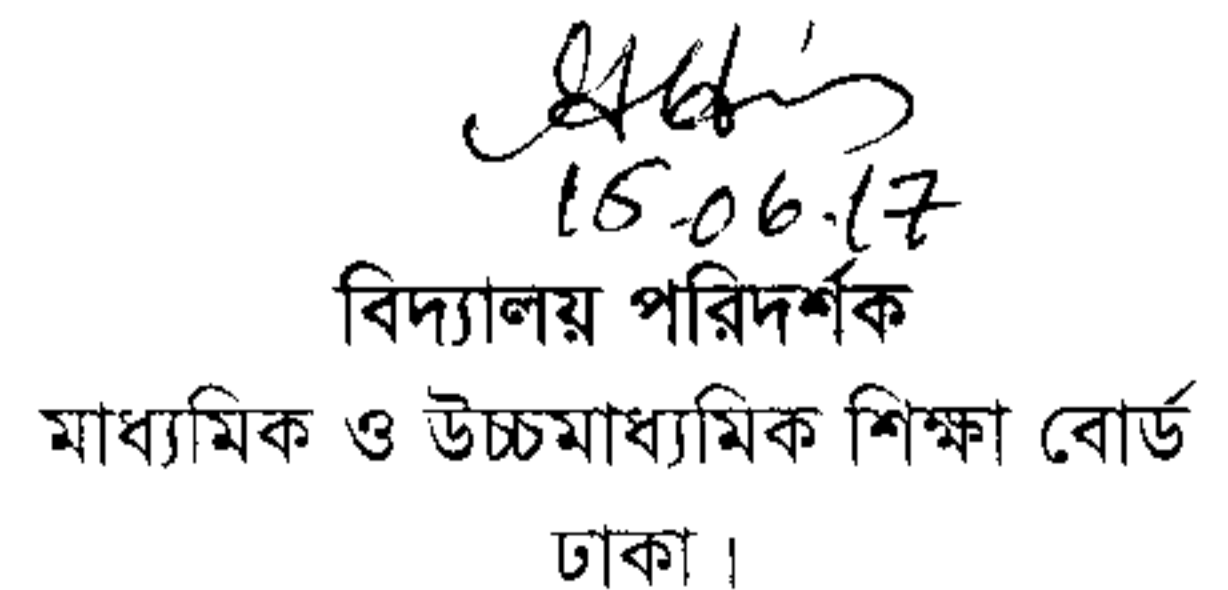 15.06.17
বিদ্যালয় পরিদর্শক
মাধ্যমিক ও উচ্চমাধ্যমিক শিক্ষা বোর্ড
ঢাকা।